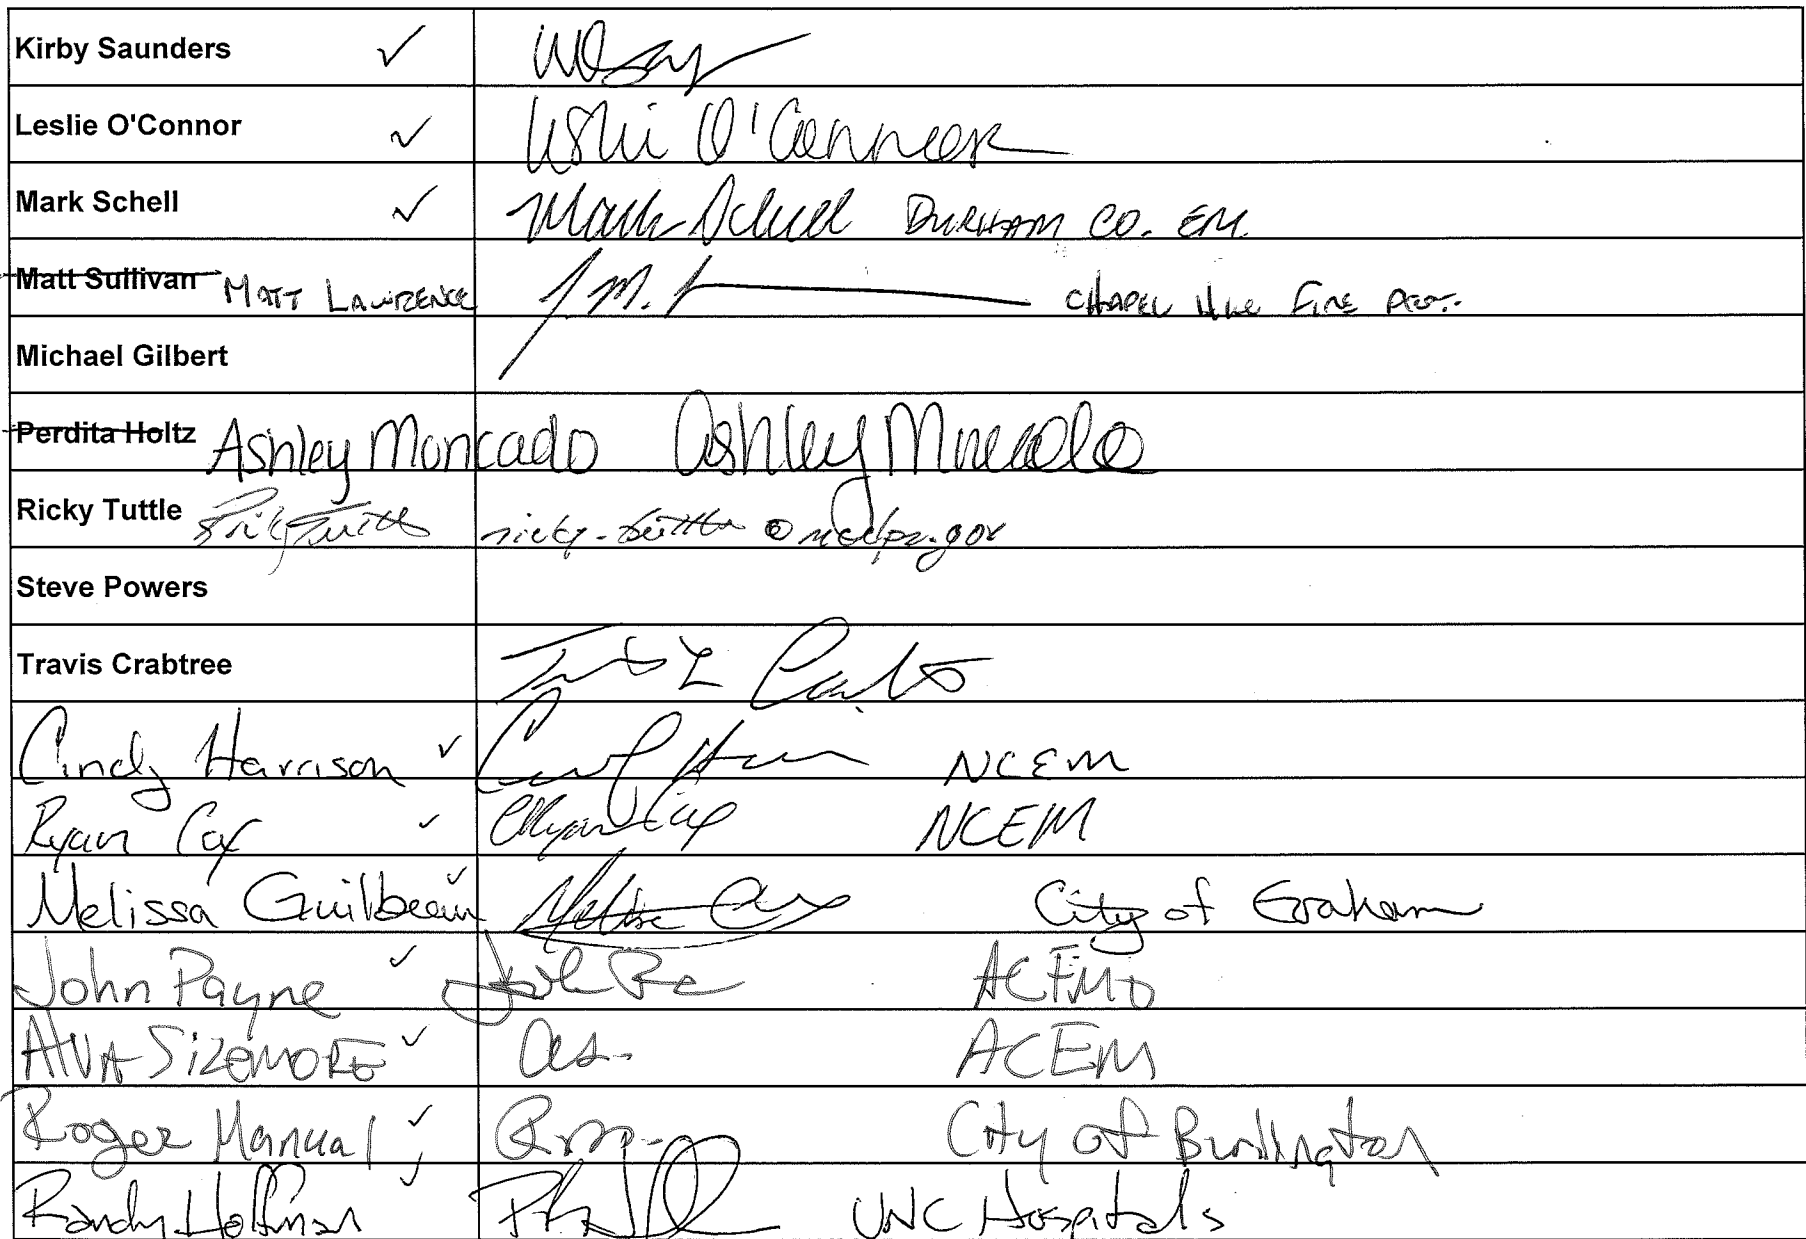 Kirby Saunders ✓
Leslie O'Connor ✓ Leslie O'Connor
Mark Schell ✓ Mark Schell DURHAM CO. EM
Matt Sullivan MATT LAWRENCE J.M. CHAPEL HILL FIRE DEPT.
Michael Gilbert
Perdita Holtz Ashley Moncado Ashley Moncado
Ricky Tuttle Ricky Tuttle ricky.tuttle@ncdps.gov
Steve Powers
Travis Crabtree Travis L Crabtree
Cindy Harrison ✓ NCEM
Ryan Cox ✓ Ryan Cox NCEM
Melissa Guilbeau ✓ City of Graham
John Payne ✓ ACEMO
ALVA SIZEMORE ✓ as. ACEM
Roger Manual ✓ City of Burlington
Randy Hoffman ✓ UNC Hospitals